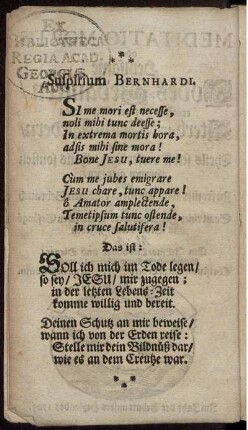 EX
BIBLIOTHECA
REGIA ACAD.
GEORGIÆ
AUG.
* * *
Suspirium BERNHARDI.
SI me mori est necesse,
noli mihi tunc deesse;
In extrema mortis hora,
adsis mihi sine mora!
Bone JESU, tuere me!
Cum me jubes emigrare
JESU chare, tunc appare!
ô Amator amplectende,
Temetipsum tunc ostende,
in cruce salutifera!
Das ist:
Soll ich mich im Tode legen/
so sey/ JESU/ mir zugegen;
in der letzten Lebens-Zeit
komme willig und bereit.
Deinen Schutz an mir beweise/
wann ich von der Erden reise:
Stelle mir dein Bildnüß dar/
wie es an dem Creutze war.
* * *